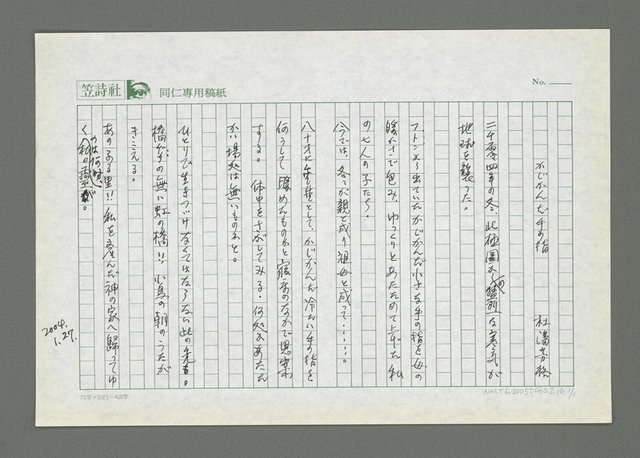 笠詩社
同仁專用稿紙
No.
かじかんだ手の指
杜潘芳格
二千零四年の冬、北極圏から猛烈な寒気が
地球を襲った。
フトンから出ていたかじかんだ小さな手の指を母の
暖かさで包み、ゆっくりとあたためて上げた 私
の七人の子たち、
今では、各々が親と成り祖母と成って・・・・・
八十才に年を重として、かじかんだ 冷たい手の指を
何うして 暖めたものかと寝床のなかで思案
する。 体中をさがしてみる・何処もあたた
かい場処は無いものかと。
ひとりで生きつづけなくてはならない此の先を。
橋げたの無い虹の橋!! 小鳥の朝のうたが
きこえる。
あの 星!! 私を産んだ神の家へ帰ってゆ
く 私の
2004.
1.27.
20字×20行=400字
NMTL20050060210.1/1